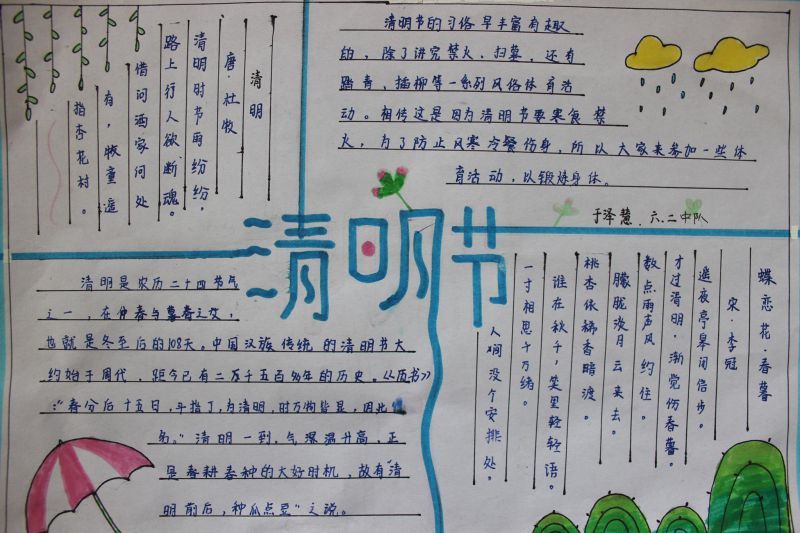 清明
唐·杜牧
清明时节雨纷纷，
路上行人欲断魂。
借问酒家何处
有，牧童遥
指杏花村。
清明节的习俗是丰富有趣
的，除了讲究禁火、扫墓，还有
踏青、插柳等一系列风俗体育活
动。相传这是因为清明节要寒食禁
火，为了防止风寒冷餐伤身，所以大家来参加一些体
育活动，以锻炼身体。
于泽慧．六．二中队
清明节
清明是农历二十四节气
之一，在仲春与暮春之交，
也就是冬至后的108天。中国汉族传统的清明节大
约始于周代，距今已有二千五百多年的历史。《历书》
：“春分后十五日，斗指丁，为清明，时万物皆显，因此
名。”清明一到，气温升高，正
是春耕春种的大好时机，故有“清
明前后，种瓜点豆”之说。
蝶恋花·春暮
宋·李冠
遥夜亭皋闲信步。
才过清明，渐觉伤春暮。
数点雨声风约住。
朦胧淡月云来去。
桃杏依稀香暗渡。
谁在秋千，笑里轻轻语。
一寸相思千万绪。
人间没个安排处。